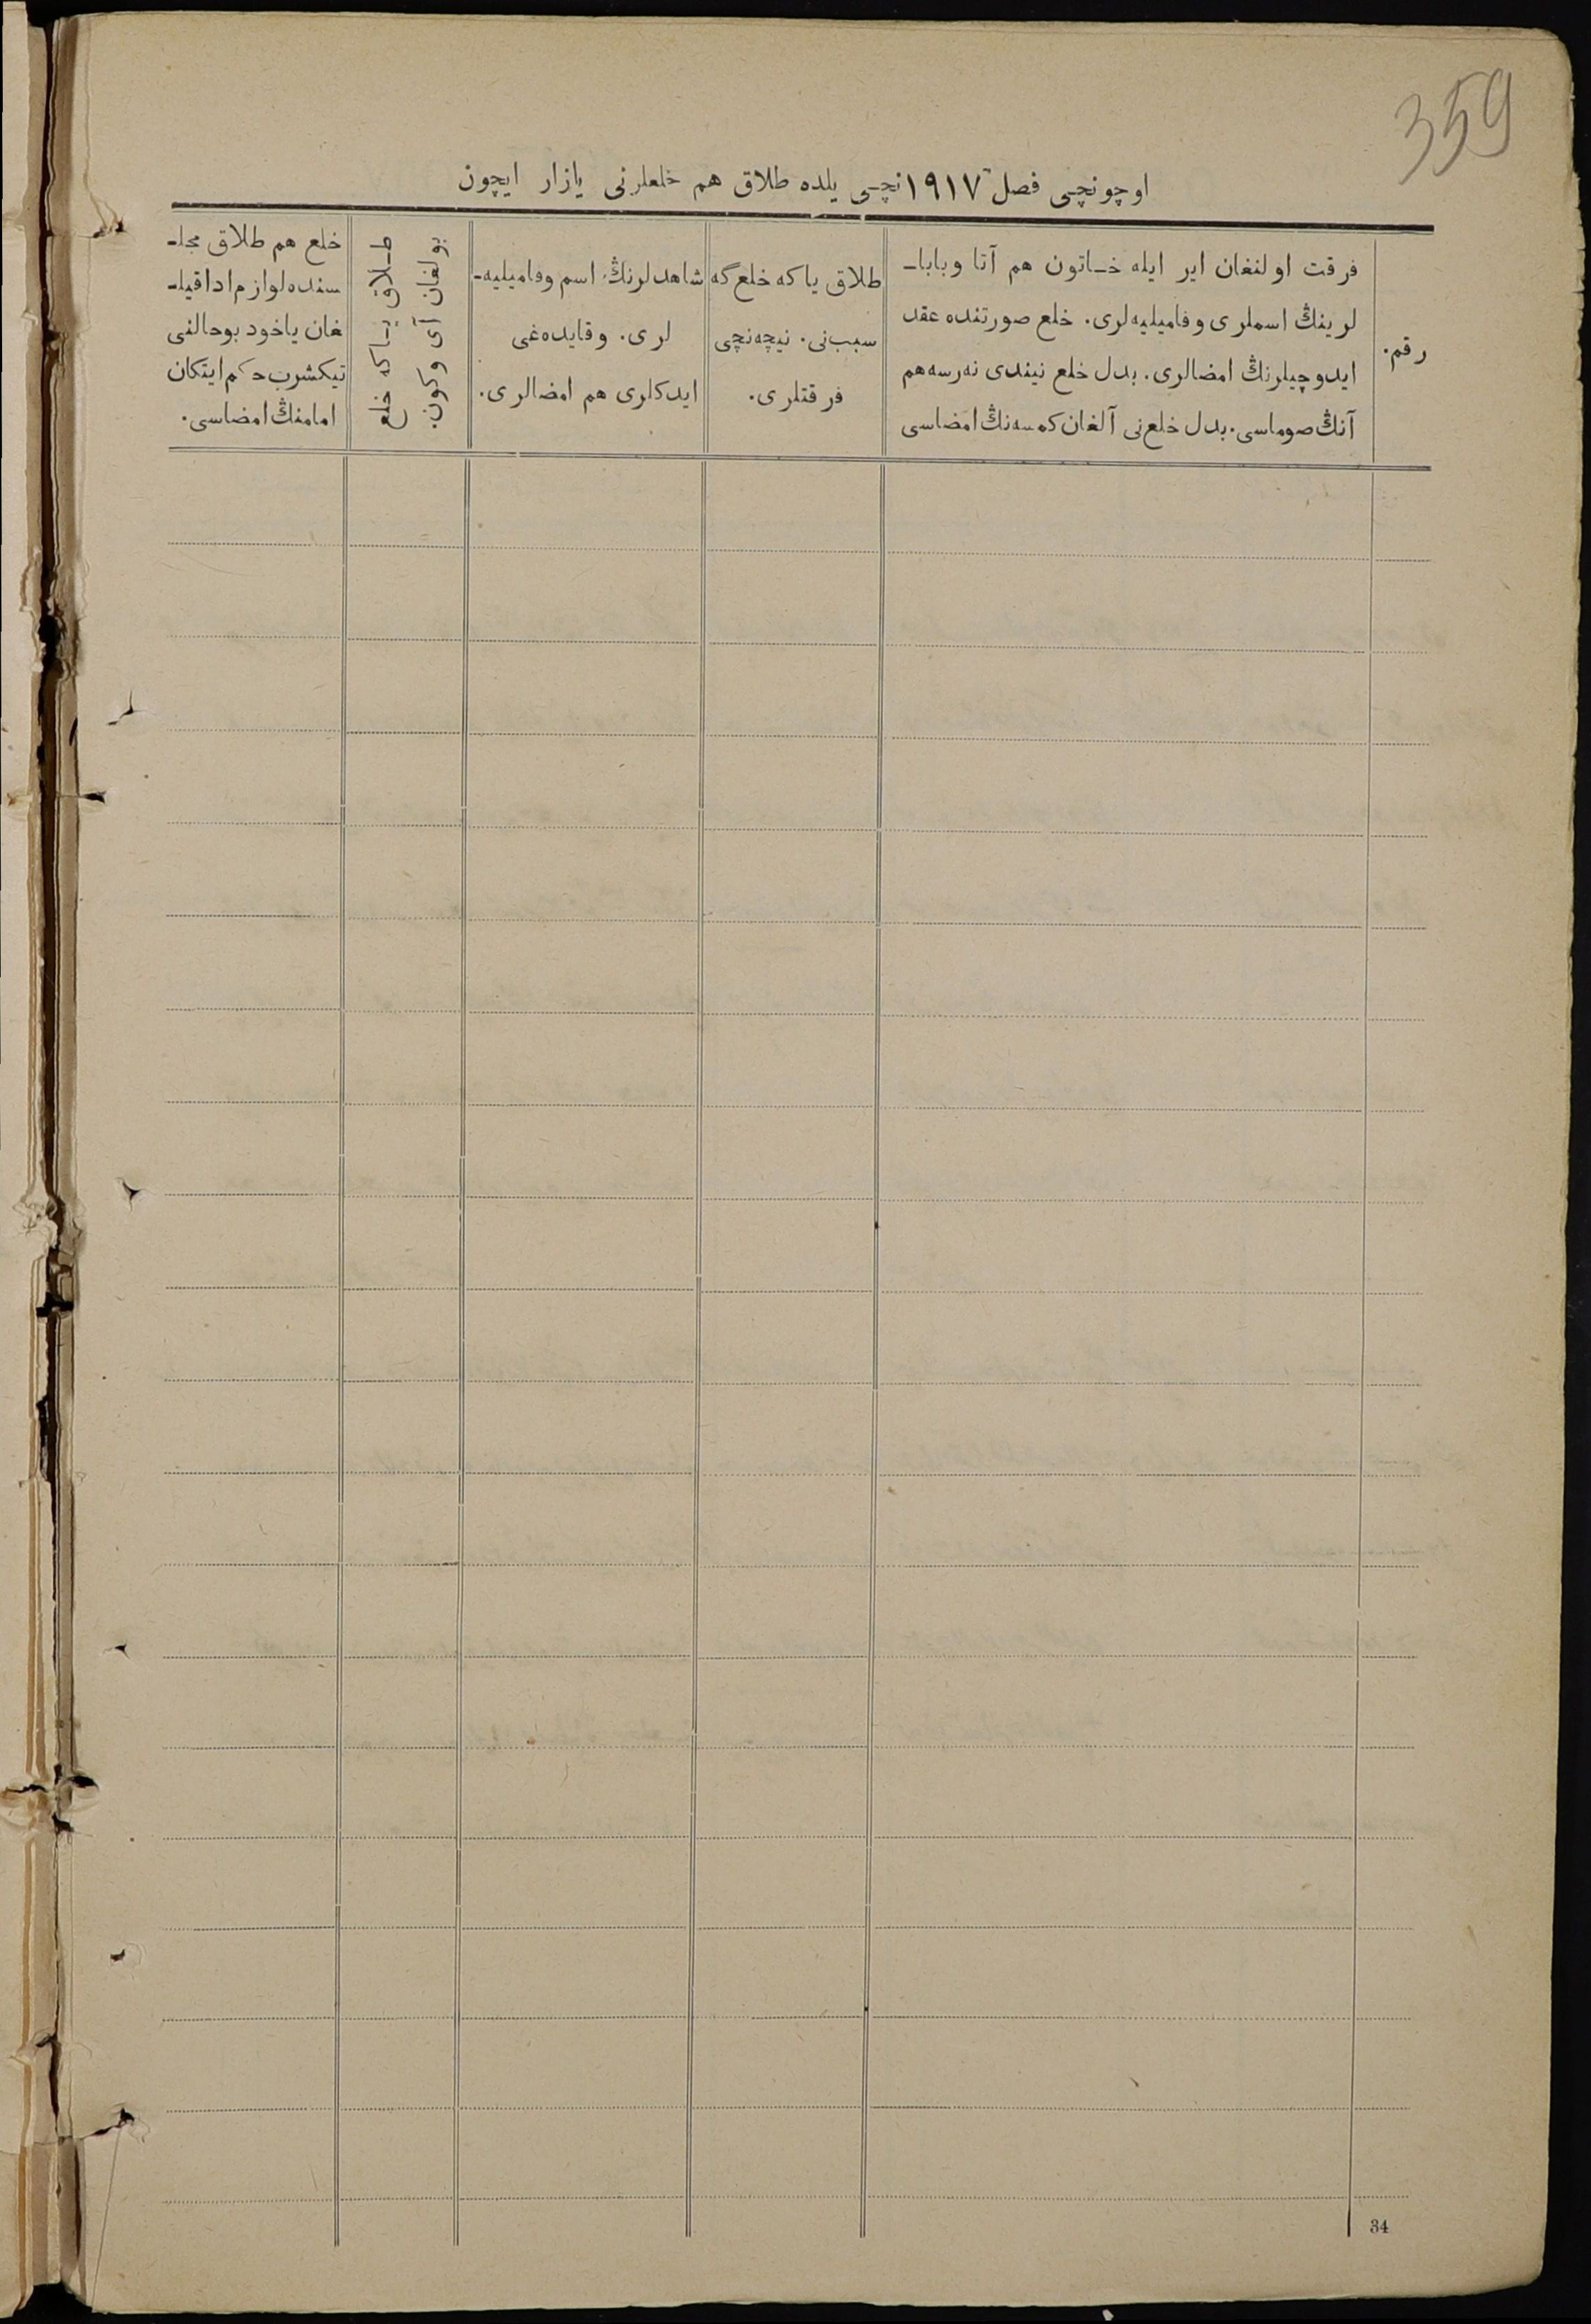 359
اوچونچی فصل ١٩١٧ نچی يلده طلاق هم خلعلرنی يازار ايچون
رقم.
فرقت اولنغان ایر ایله خـاتون هم آتا وبابا-
لرینڭ اسملری وفامیلیه‌لری. خلع صورتنده عقد
ایدوچیلرنڭ امضالری. بدل خلع نیندی نه‌رسه هم
آنڭ صوماسی. بدل خلع‌نی آلغان کمسه‌نڭ امضاسی
طلاق یاکه خلع‌گه
سبب‌نی. نیچه‌نچی
فرقتلری.
شاهدلرنڭ اسم وفامیلیه-
لری. وقایده‌غی
ایدکلری هم امضالری.
طـلاق یـاکه خلع
بولغان آی وکون.
خلع هم طلاق مجلـ
سنده لوازم اداقیلـ
غان یاخود بوحالنی
تیکشرب حکم ایتکان
امامنڭ امضاسی.
34